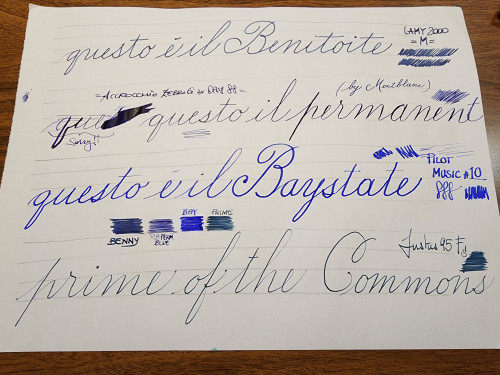 questo è il Benitoite
LAMY 2000
= M =
= Accrocchio Zebra G su
(by Montblanc)
questo il permanent
Sorry!!
questo è il Baystate
PILOT
MUSIC #10
BENNY
BLUE
PRIME
Justus 95 F
prime of the Commons